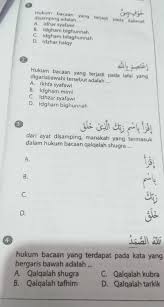 Hukum bacaan yang terjadi pada kalimat
disamping adalah ....
A. Idhar syafawi
B. Idgham bighunnah
C. Idgham bilaghunnah
D. Idzhar halqy
2
Hukum bacaan yang terjadi pada lafal yang
digarisbawahi tersebut adalah ...
A. Ikhfa syafawi
B. Idgham mimi
C. Idhzar syafawi
D. Idgham bighunnah
3
اقرأ باسم ربك الذي خلق
dari ayat disamping, manakah yang termasuk
dalam hukum bacaan qalqalah shugra ...
A.
اقرأ
B.
باسم
C.
ربك
D.
خلق
4
الله الصمد
hukum bacaan yang terdapat pada kata yang
bergaris bawah adalah ...
A. Qalqalah shugra
C. Qalqalah kubra
B. Qalqalah tafhim
D. Qalqalah tarkik